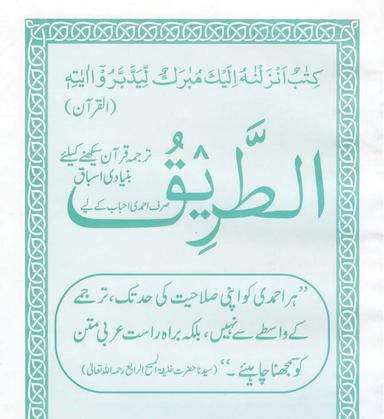 كِتٰبٌ اَنْزَلْنٰهُ اِلَيْكَ مُبٰرَكٌ لِّيَدَّبَّرُوْٓا اٰيٰتِهٖ
(القرآن)
ترجمہ قرآن سیکھنے کیلئے
بنیادی اسباق
صرف احمدی احباب کے لیے
الطَّرِيْقُ
”ہر احمدی کو اپنی صلاحیت کی حد تک، ترجمے
کے واسطے سے نہیں، بلکہ براہ راست عربی متن
کو سمجھنا چاہیئے۔“ (سیدنا حضرت خلیفۃ المسیح الرابع رحمہ اللہ تعالیٰ)